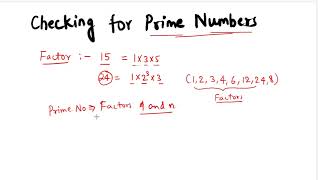 Checking for Prime Numbers
Factor :- 15 = 1x3x5
24 = 1x2³x3 (1,2,3,4,6,12,24,8)
Factors
Prime No => Factors 1 and n